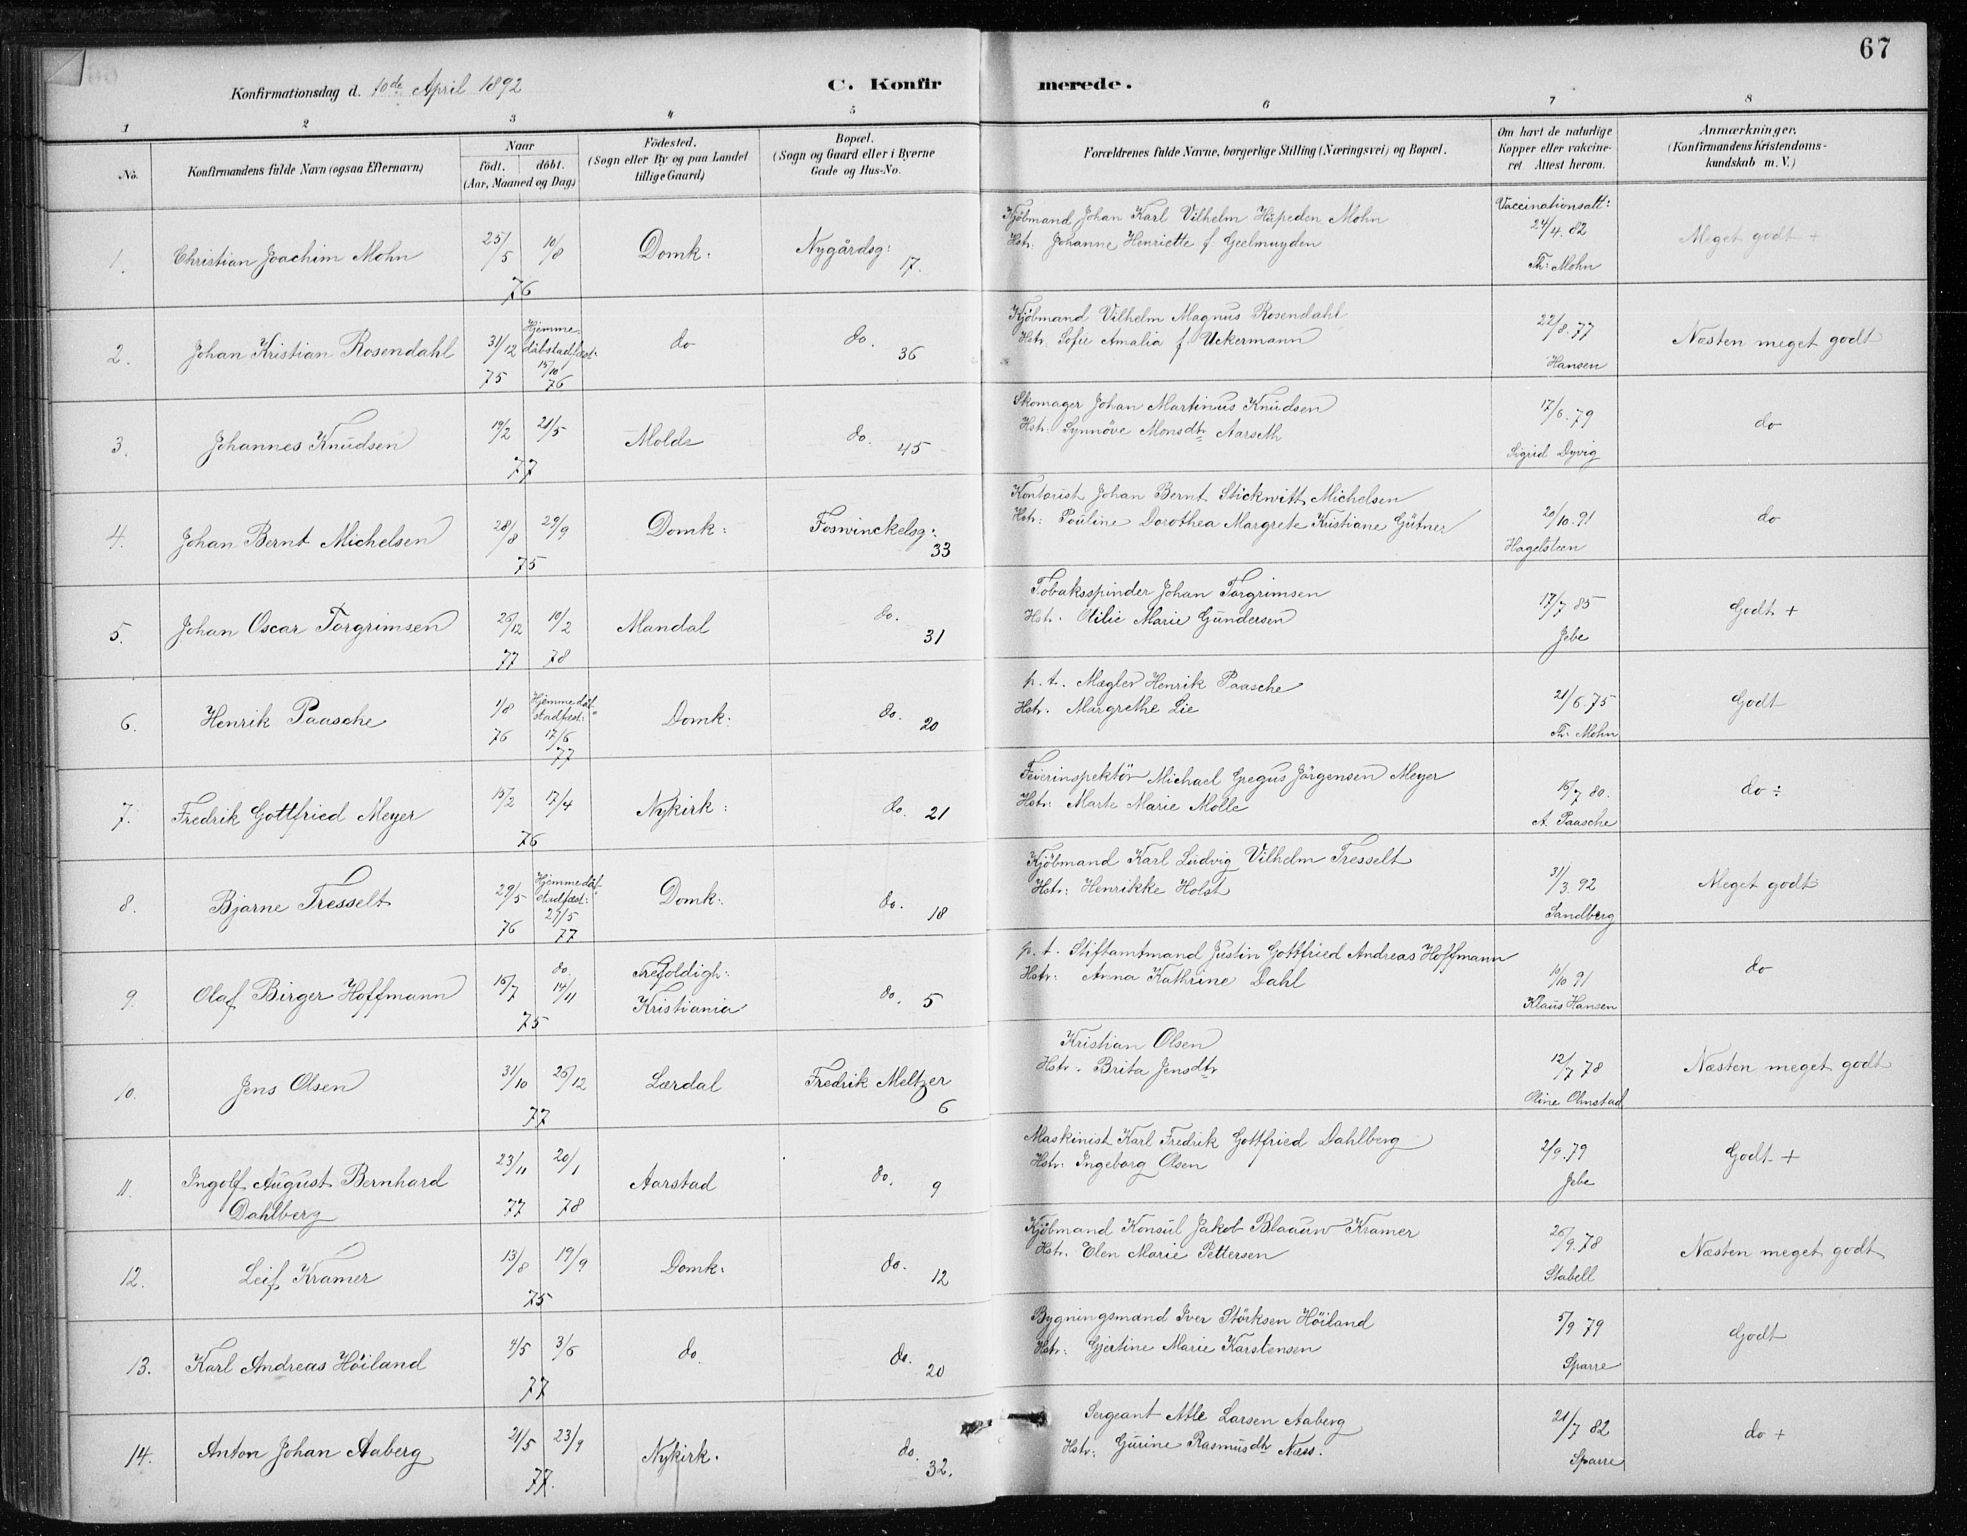 67
Konfirmationsdag d. 10de April 1892
C. Konfirmerede.
1 2 3 4 5 6 7 8
No.
Konfirmandens fulde Navn (ogsaa Efternavn)
Naar
födt. döbt.
(Aar, Maaned og Dag.)
Födested.
(Sogn eller By og paa Landet
tillige Gaard)
Bopæl.
(Sogn og Gaard eller i Byerne
Gade og Hus-No.
Forældrenes fulde Navne, borgerlige Stilling (Næringsvei) og Bopæl.
Om havt de naturlige
Kopper eller vakcine-
ret Attest herom.
Anmærkninger.
(Konfirmandens Kristendoms-
kundskab m. V.)
1. Christian Joachim Mohn 25/5 10/8 76 Domk: Nygårdsg: 17.
Kjøbmand Johan Karl Vilhelm Hüpeden Mohn
Hstr: Johanne Henriette f. Geelmuyden
Vaccinationsatt:
24/4. 82
Th: Mohn
Meget godt +
2. Johan Kristian Rosendahl 31/12 75 Hjemme-
däbstadfæst:
15/10 76
do do. 36
Kjøbmand Vilhelm Magnus Rosendahl
Hstr. Sofie Amalia f. Uckermann
22/8. 77
Hansen
Næsten meget godt
3. Johannes Knudsen 19/2 21/5 77 Molde do. 45
Skomager Johan Martinus Knudsen
Hstr. Synnöve Monsdtr Aarseth
17/6. 79
Sigrid Dyvig
do
4. Johan Bernt Michelsen 28/8 29/9 75 Domk: Foswinckelsg: 33
Kontorist Johan Bernt Stickwitt Michelsen
Hstr: Pauline Dorothea Margrete Kristiane Gütner
20/10. 91
Hagelsteen
do
5. Johan Oscar Torgrimsen 26/12 77 10/2 78 Mandal do. 31
Tobaksspinder Johan Torgrimsen
Hstr. Otilie Marie Gundersen
17/7 85
Jebe
Godt +
6. Henrik Paasche 1/8 76 Hjemmedäb
stadfæst:
17/6 77
Domk: do. 20
p. t. Mægler Henrik Paasche
Hstr. Margrethe Lie
21/6. 75
Th: Mohn
Godt
7. Fredrik Gottfried Meyer 15/2 17/4 76 Nykirk: do. 21
Feierinspektör Michael Gregus Jörgensen Meyer
Hstr: Marte Marie Molle
16/7 80.
A. Paasche
do ÷
8. Bjarne Tresselt 29/5 76 Hjemmedäb
stadfæst:
29/5 77
Domk: do. 18
Kjøbmand Karl Ludvig Vilhelm Tresselt
Hstr: Henrikke Holst
31/3. 92
Sandberg
Meget godt
9. Olaf Birger Hoffmann 16/7 do. 14/11 75 Trefoldigh:
Kristiania
do. 5
p. t. Stiftamtmand Justin Gottfried Andreas Hoffmann
Hstr: Anna Kathrine Dahl
16/10 91
Klaus Hansen
do
10. Jens Olsen 31/10 26/12 77 Lærdal Fredrik Meltzer 6
Kristian Olsen
Hstr. Brita Jensdtr
12/7 78
Oline Olmstad
Næsten meget godt
11. Ingolf August Bernhard
Dahlberg
23/11 77 20/1 78 Aarstad do. 9
Maskinist Karl Fredrik Gottfried Dahlberg
Hstr: Ingeborg Olsen
2/9. 79
Jebe
Godt +
12. Leif Kramer 13/8 19/9 75 Domk: do. 12
Kjøbmand Konsul Jakob Blaauw Kramer
Hstr. Elen Marie Pettersen
26/9. 78
Stabell
Næsten meget godt
13. Karl Andreas Höiland 4/5 3/6 77 do. do. 20
Bygningsmand Iver Störksen Höiland
Hstr: Gjertine Marie Karstensen
5/9 79
Sparre
Godt
14. Anton Johan Aaberg 21/5 23/9 77. Nykirk. do. 32.
Sergeant Atle Larsen Aaberg
Hstr: Gurine Rasmusdtr Næss.
21/7 82
Sparre
do +